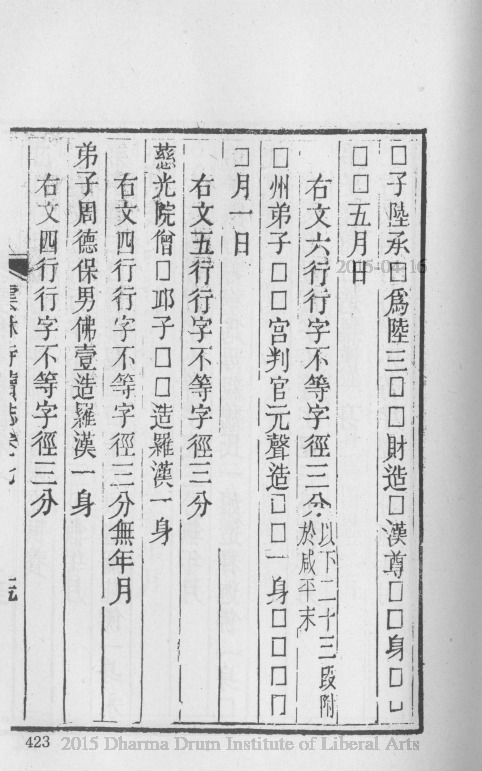 □子陸承□為陸三□□財造□漢尊□□身□□
□□五月日
右文六行行字不等字徑三分以下二十三段附於咸平末
□州弟子□□宮判官元聲造□□□一身□□□□
□月一日
右文五行行字不等字徑三分
慈光院僧□邱子□□造羅漢一身
右文四行行字不等字徑三分無年月
弟子周德保男佛壹造羅漢一身
右文四行行字不等字徑三分
雲林寺續志卷七
423
2015-04-16
2015 Dharma Drum Institute of Liberal Arts